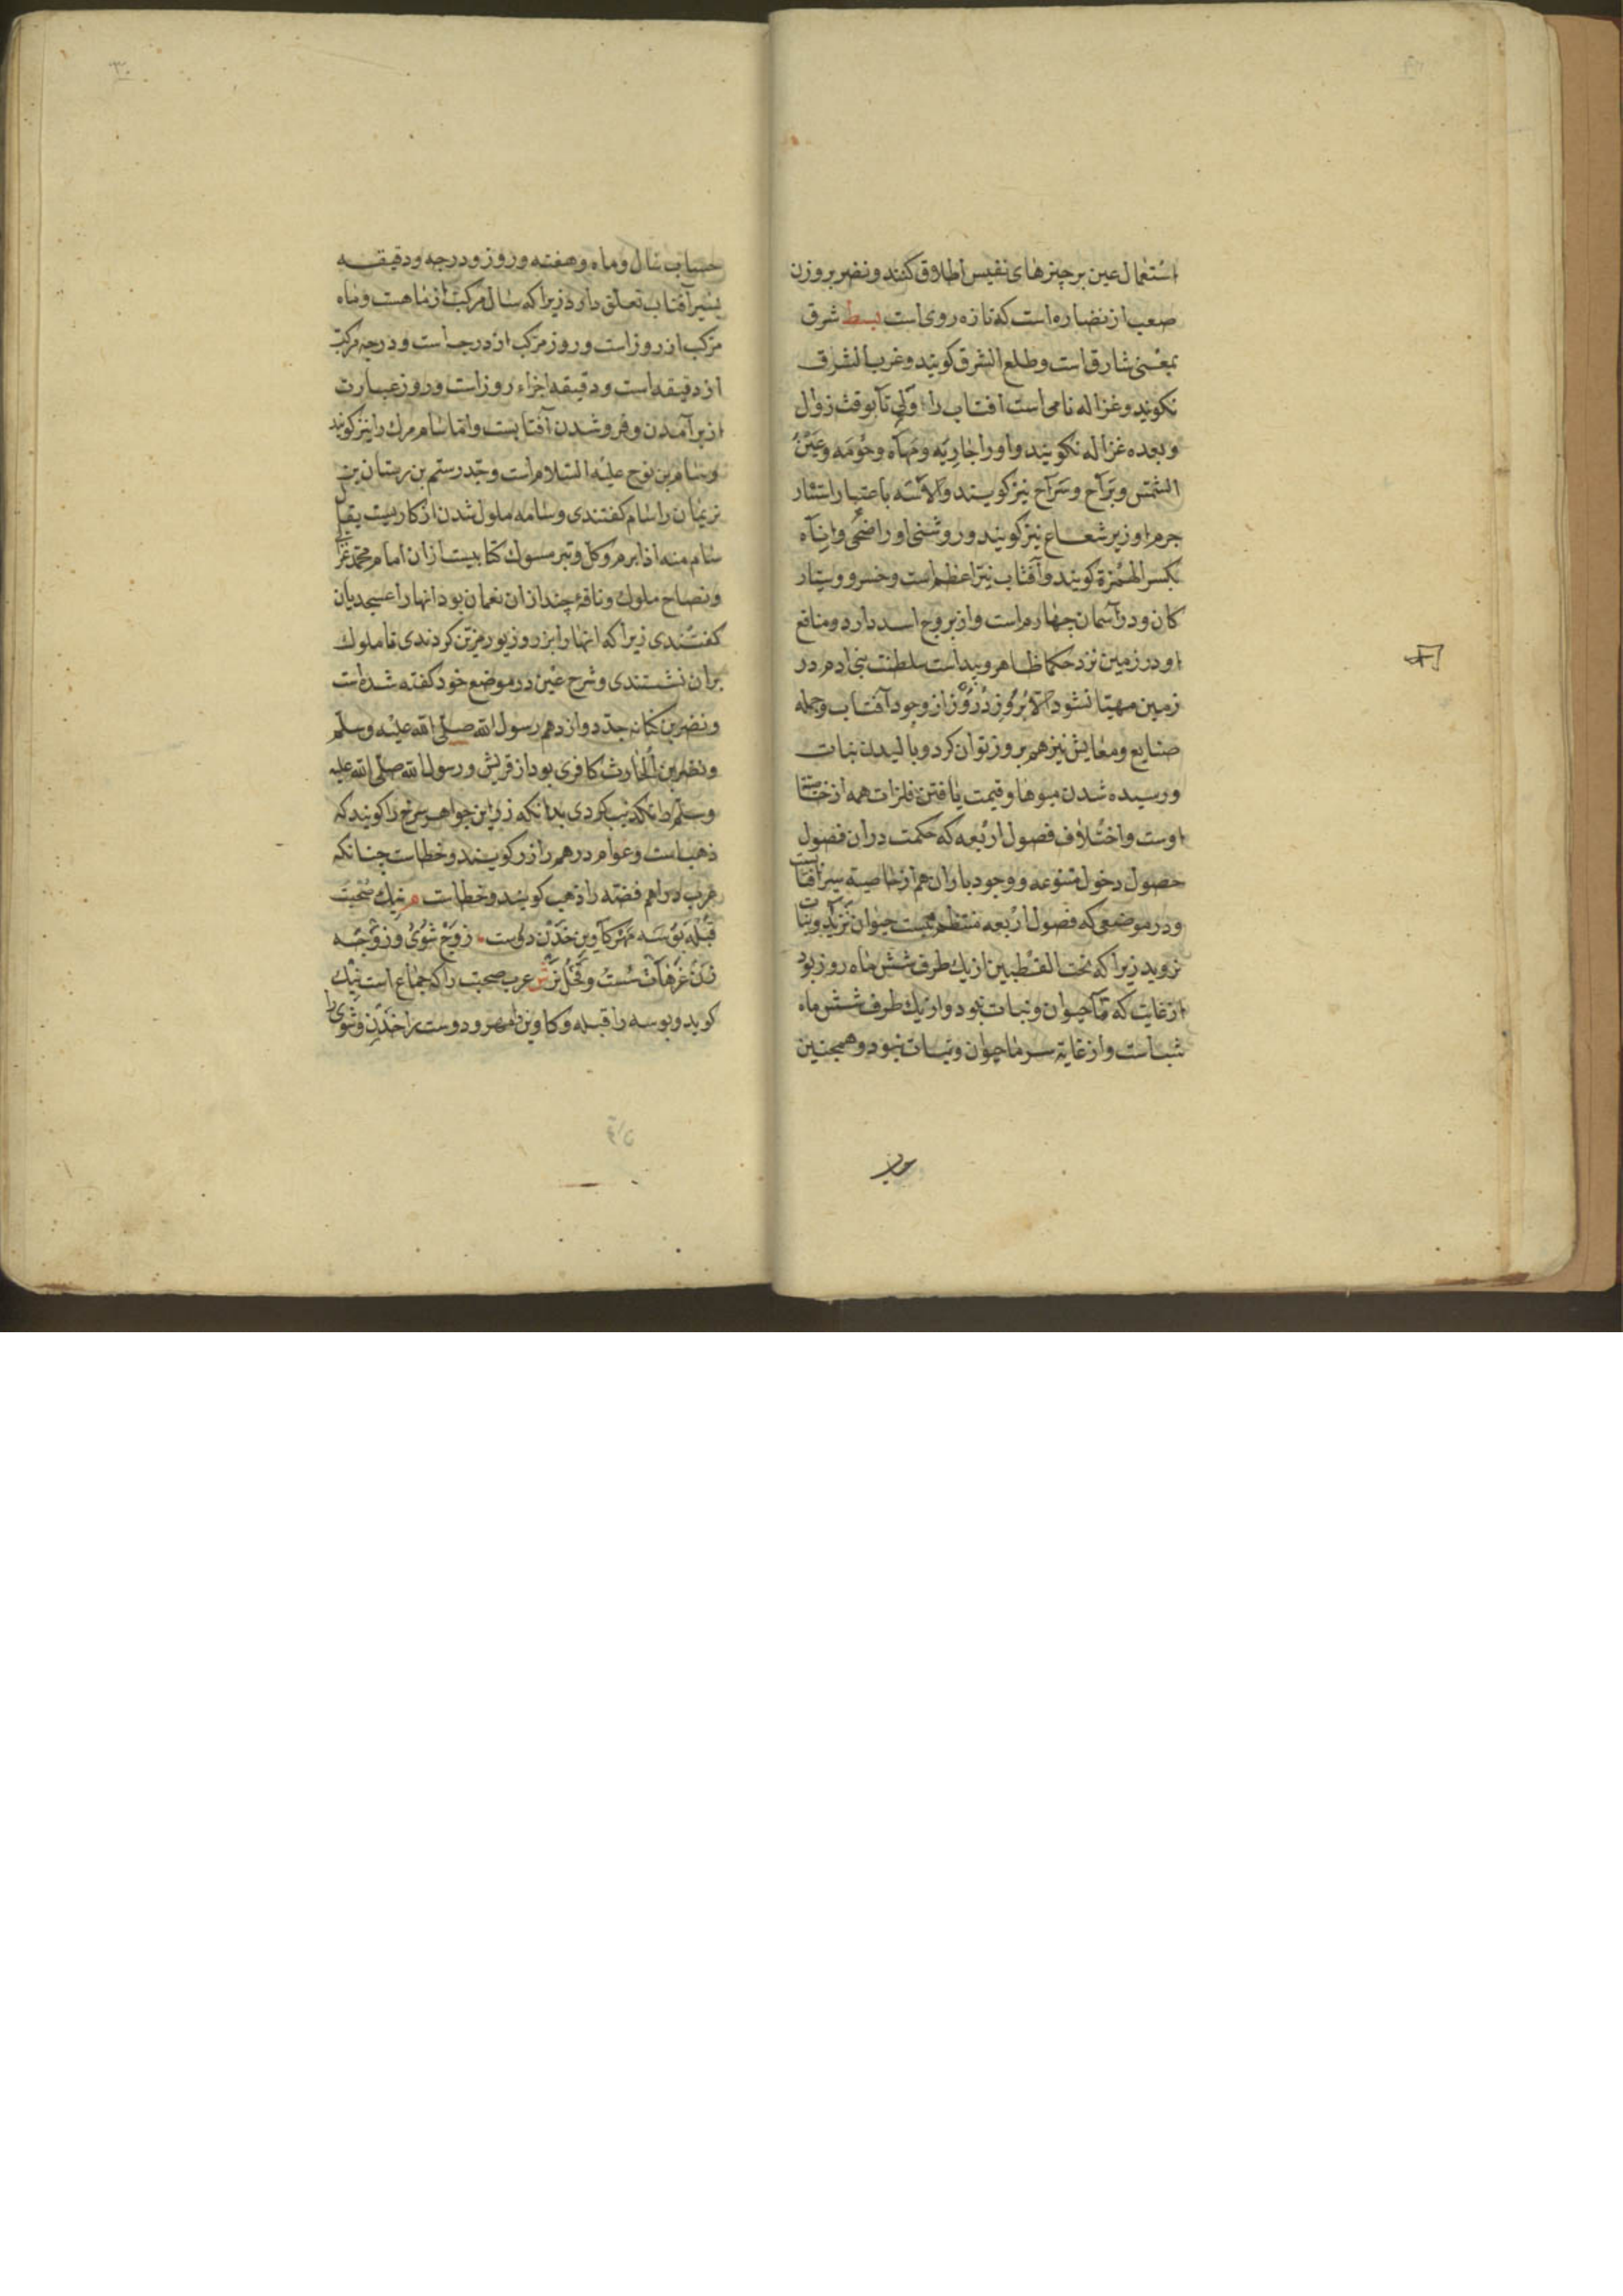 استعمال عین بر چیزهای نفیس اطلاق کنند و نضر بروزن
صعب از نضاره است که تازه روی است بسط شرق
بمعنی شارق است و طلع الشرق کویند و غرب الشرق
نکویند و غزاله نامی است افتاب را ولی تا بوقت زوال
و بعده غزاله نکویند و او را جاریه و مهاة و جومه و عین
الشمس و براح و سراح نیز کویند و الاسته باعتبار استتار
جرم او زیر شعاع نیز کویند و روشنی او را ضحی و ایاة
بکسر الهمزة کویند و آفتاب نیر اعظم است و خسرو سیار
کان و در آسمان چهارم است و از بروج اسد دارد و منافع
او در زمین نزد حکما ظاهر و پیداست سلطنت بنی ادم در
زمین مهیا نشود الا بروز و روز از وجود آفتاب و جمله
صنایع و معایش نیز هم بروز توان کرد و بالیدن نبات
و رسیده شدن میوها و قیمت یافتن فلزات همه از خاصیت
اوست و اختلاف فصول اربعه که حکمت در ان فصول
حصول دخول متنوعه و وجود باران هم از خاصیة سیر افتابست
و در موضعی که فصول اربعه منتظم نیست حیوان نزید و نبات
نروید زیرا که تحت القطبین از یک طرف شش ماه روز بود
از غایت کرما حیوان و نبات نبود و از یک طرف شش ماه
شب است و از غایة سرما حیوان و نبات نبود و همچنین
حساب سال و ماه و هفته و روز و درجه و دقیقه
بسیر آفتاب تعلق دارد زیرا که سال مرکب از ماهست و ماه
مرکب از روز است و روز مرکب از درجه است و درجه مرکب
از دقیقه است و دقیقه اجزاء روز است و روز عبارت
از برآمدن و فرو شدن آفتابست و اما سام مرک را نیز کویند
و سام بن نوح علیه السلام است و جد رستم بن دستان بن
نریمان را سام کفتندی و سامه ملول شدن از کاریست یقال
سام منه اذا ابرم و کل و تبر مسبوک کتابیست از ان امام محمد غزالی
و نصاح ملوک و ناقه چند از ان نعمان بود انها را عسجدیان
کفتندی زیرا که انها را بزر و زیور مزین کردندی تا ملوک
بران نشستندی و شرح عین در موضع خود کفته شده است
و نضر بن کنانه جد دوازدهم رسول الله صلی الله علیه وسلم
و نضر بن الحارث کافری بود از قریش و رسول الله صلی الله علیه
وسلم را تکذیب کردی بدانکه زر این جواهر سرخ را کویند که
ذهب است و عوام درهم را زر کویند و خطاست چنانکه
عرب دراهم فضه را ذهب کویند و خطاست
قبله بوسه مهر کاوین خدن دوست زوج شوی و زوجه
زن و فحل نر عرب صحبت را که جماع است نیک
کوید و بوسه را قبله و کاوین را مهر و دوست را خدن و شوی را